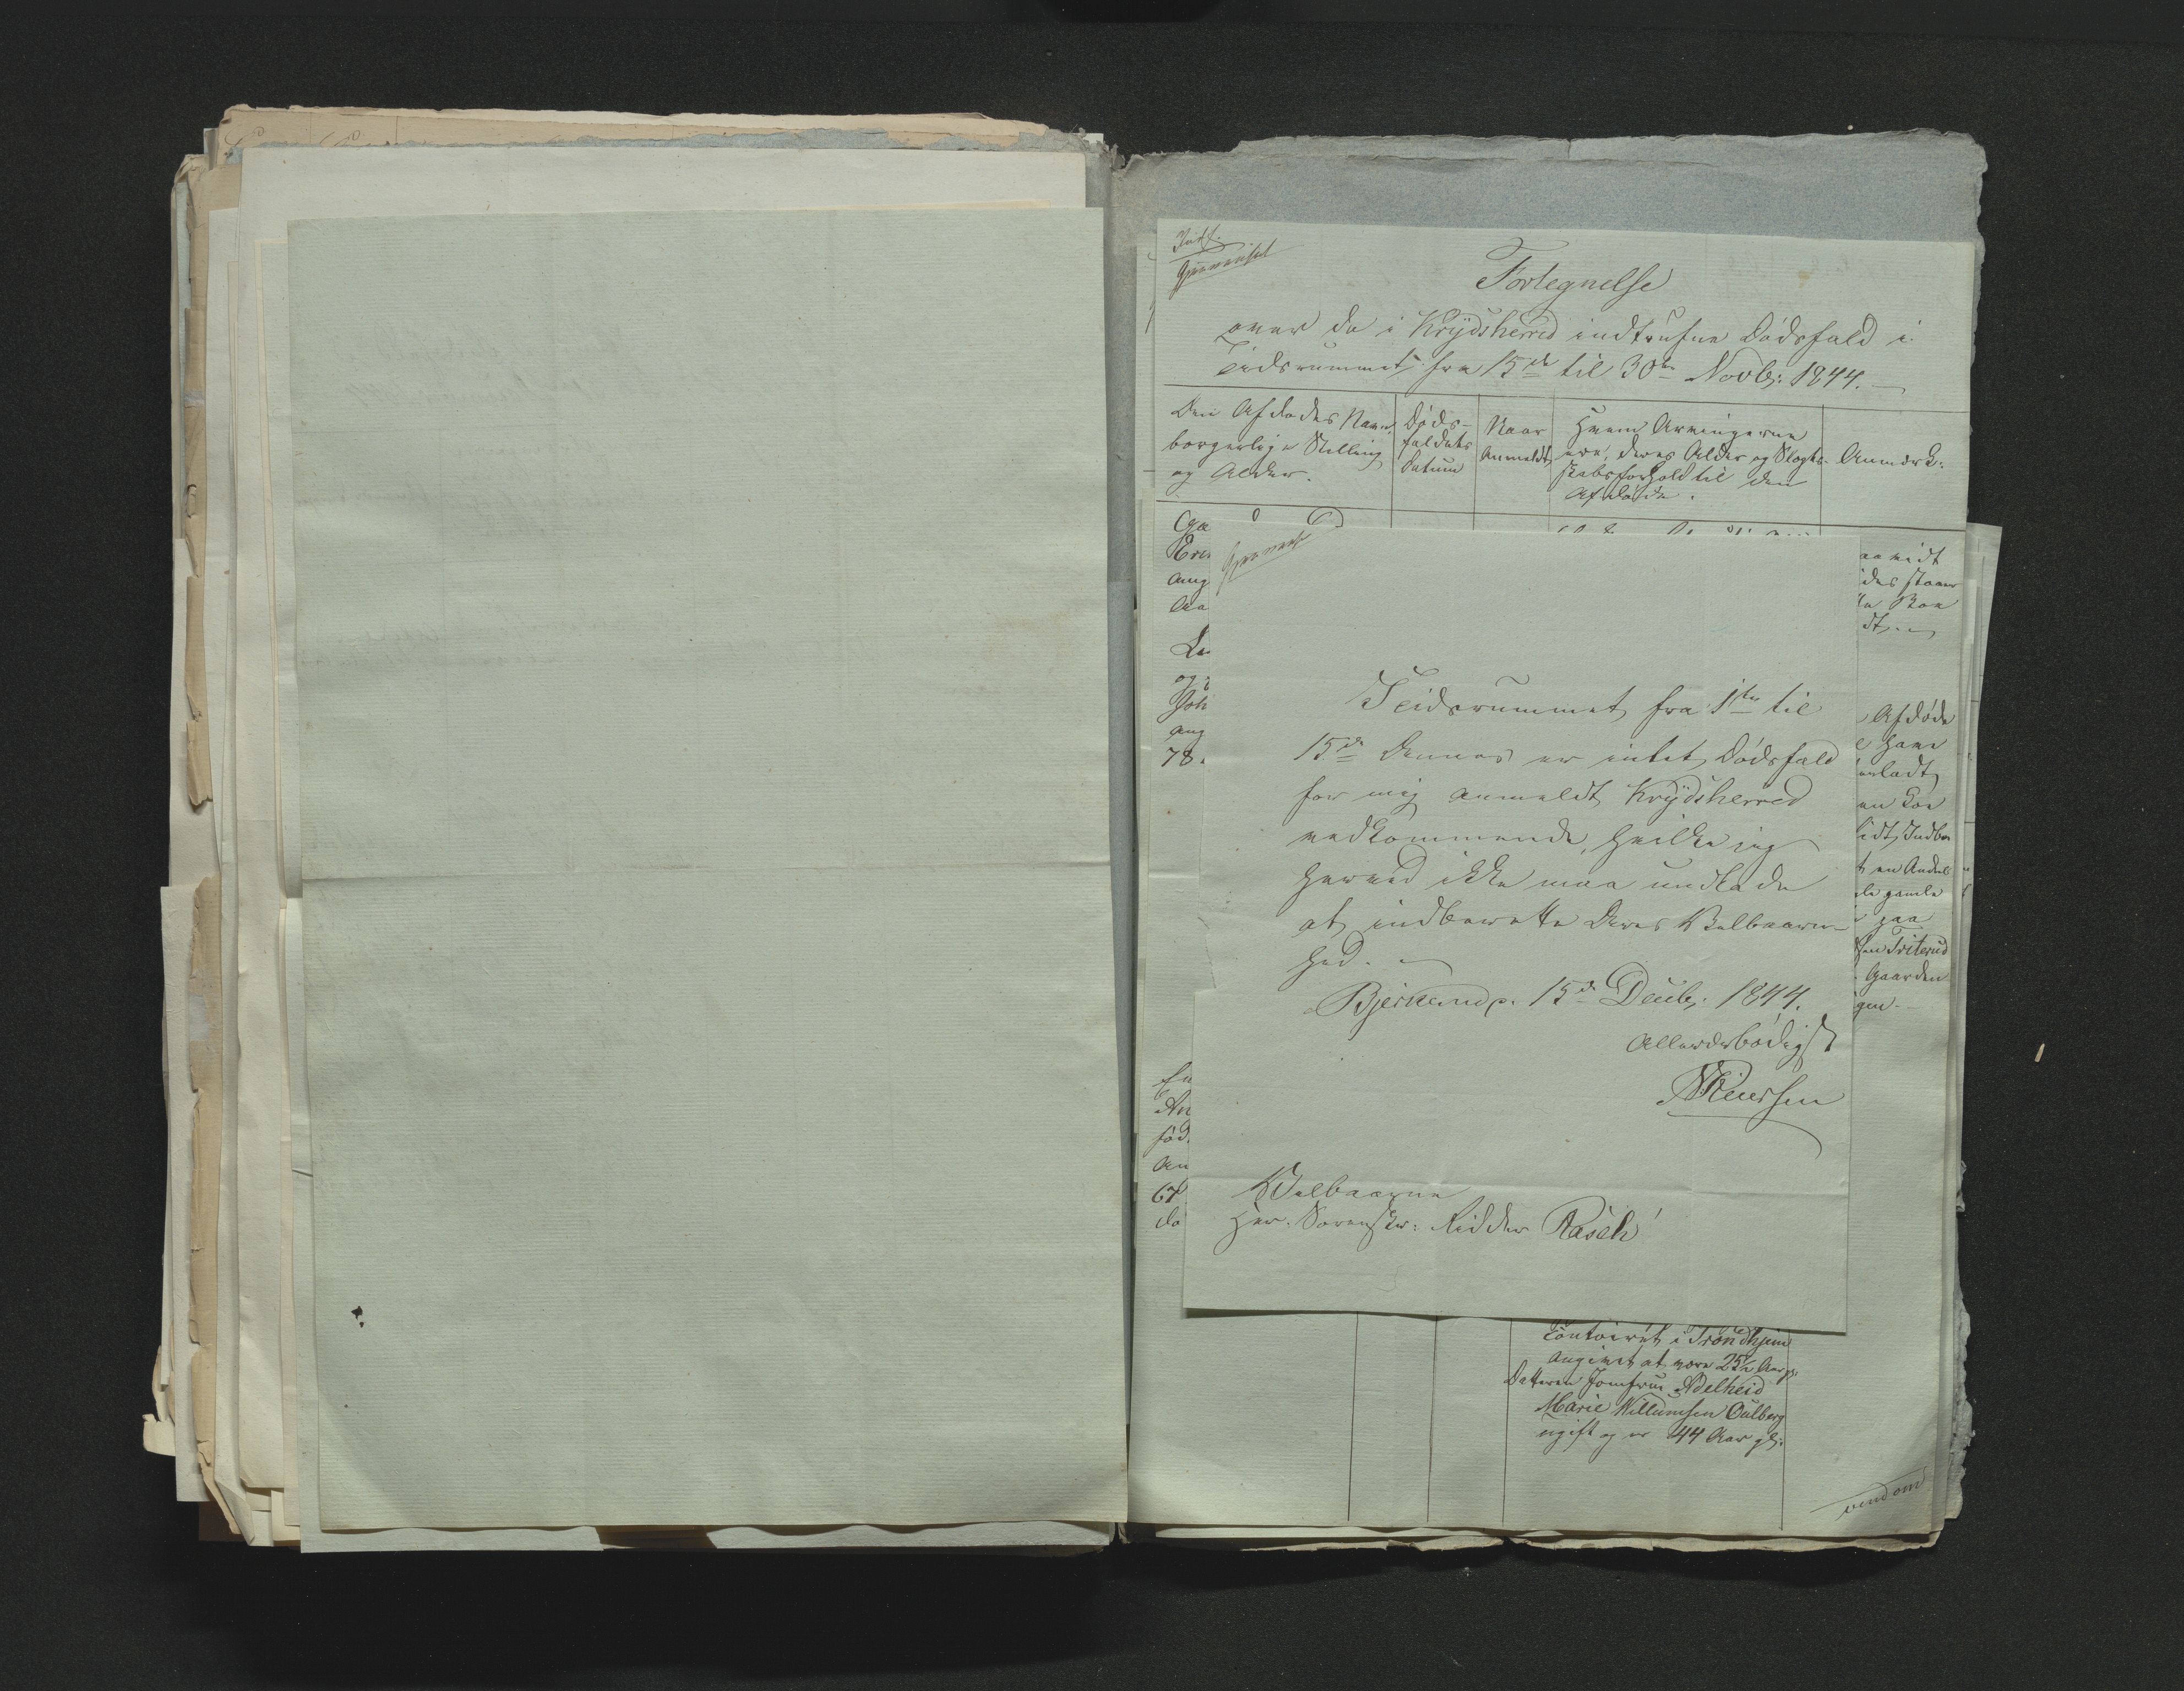 Indf.
Gjennemset
Fortegnelse
over de i Krydsherred indtrufne Dødsfald i
Tidsrummet fra 15de til 30te Novbr: 1844.
Den Afdødes Navn,
borgerlige Stilling
og Alder.
Døds-
faldets
Datum
Naar
Anmeldt
Hvem Arvingerne
ere, deres Alder og Slægt-
skabsforhold til den
Afdøde.
Anmærk:
Gjennemset
I Tidsrummet fra 1ste til
15de dennes er intet Dødsfald
for mig anmeldt Krydsherred
vedkommende, hvilket jeg
herved ikke maa undlade
at indberette Deres Velbaaren-
hed.
Bjerkerud p. 15de Decbr: 1844.
Allerærbødigst
Velbaarne
Herr Sorenskr: Ridder Rasch
Afdøde
have
en Koe
en Andel
gamle
paa
Triterud
Gaarden
78.
67
Contoiret i Trondhjem
angivet at være 25 1/2 Aar gl:
Datteren Jomfrue Adelheid
Marie Willumsen Oulberg
ugift og er 44 Aar gl:
vend om